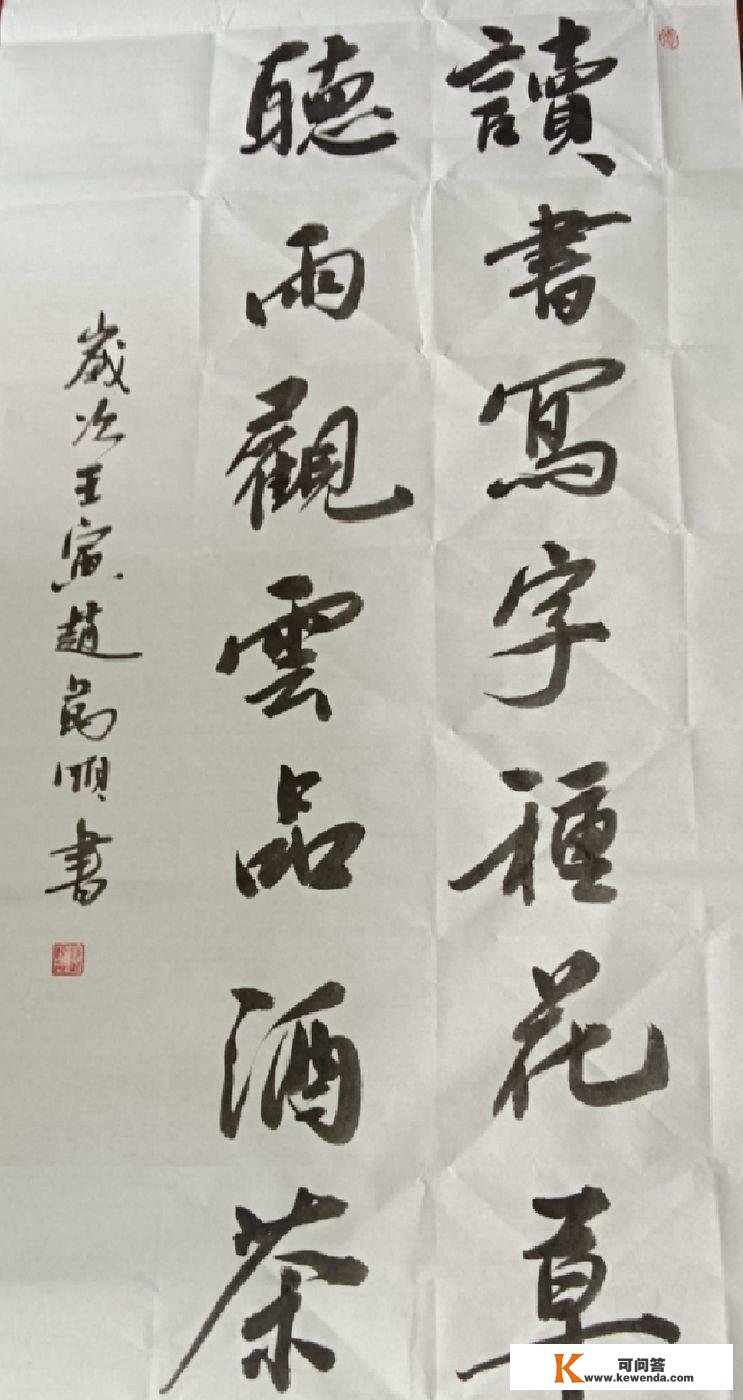 讀書寫字種花草
聽雨觀雲品酒茶
歲次壬寅趙尚順書
可问答
www.kewenda.com